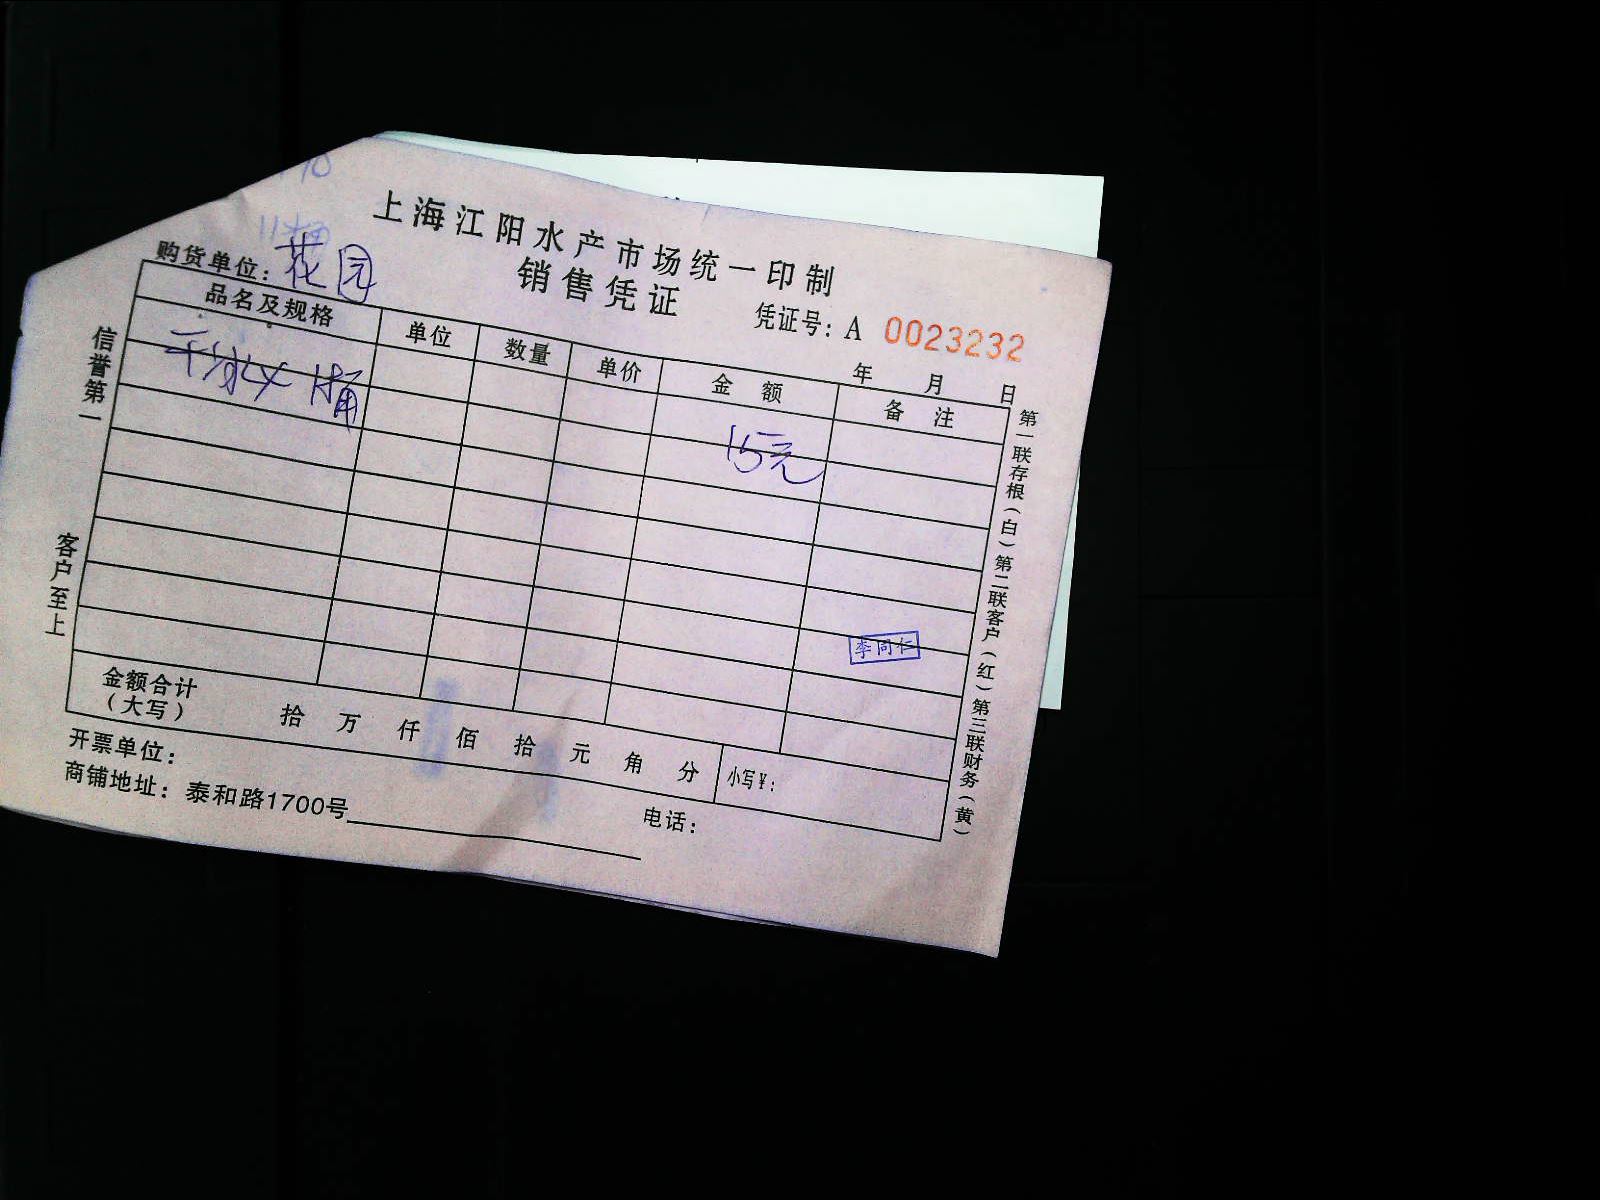 上海江阳水产市场统一印制
销售凭证
购货单位：花园
凭证号：A 0023232
年 月 日
品名及规格 单位 数量 单价 金 额 备 注
干冰 1桶 15元
李同仁
金额合计
（大写） 拾 万 仟 佰 拾 元 角 分 小写￥：
开票单位：
商铺地址：泰和路1700号 电话：
信誉第一
客户至上
第一联存根（白）第二联客户（红）第三联财务（黄）